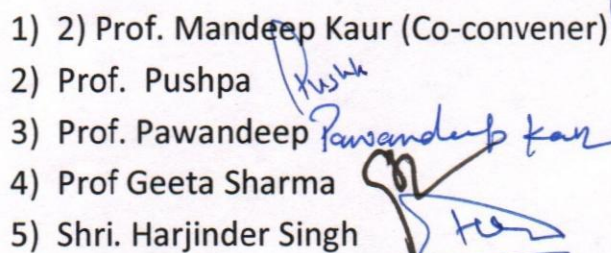 1) 2) Prof. Mandeep Kaur (Co-convener)
2) Prof. Pushpa Pushp
3) Prof. Pawandeep Pawandeep Kaur
4) Prof Geeta Sharma
5) Shri. Harjinder Singh